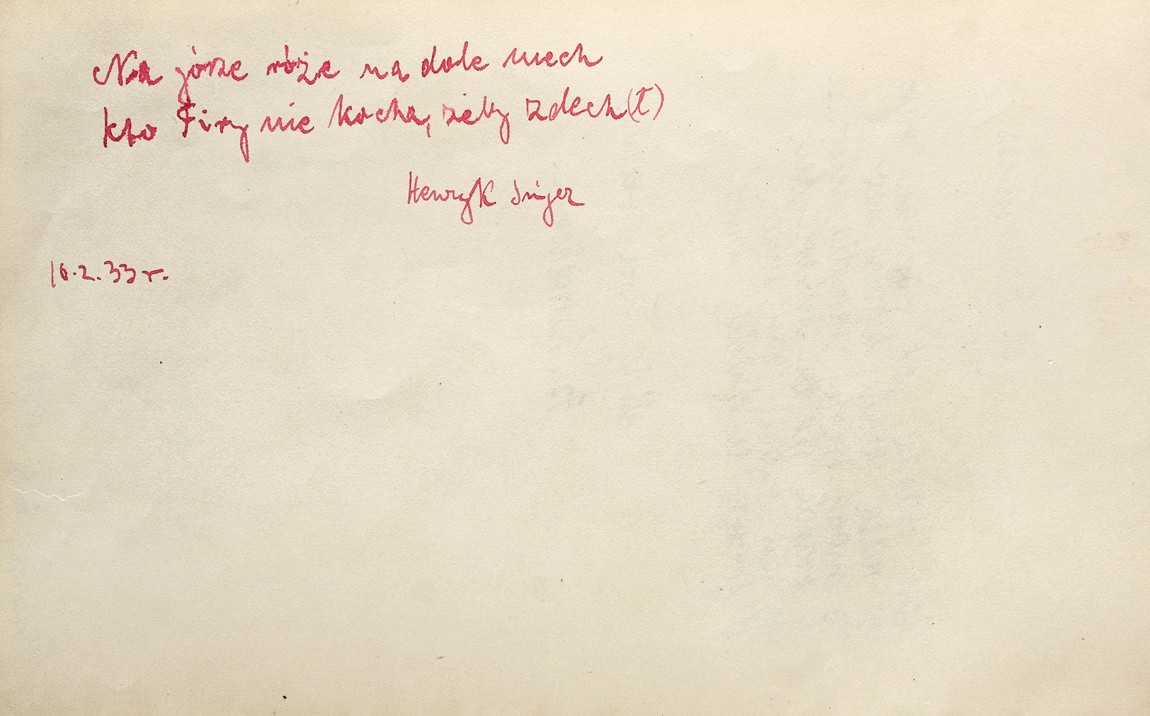 Na górze róże na dole mech
kto Firy nie kocha, żeby zdech(ł)
Henryk Singer
16.2.33 r.